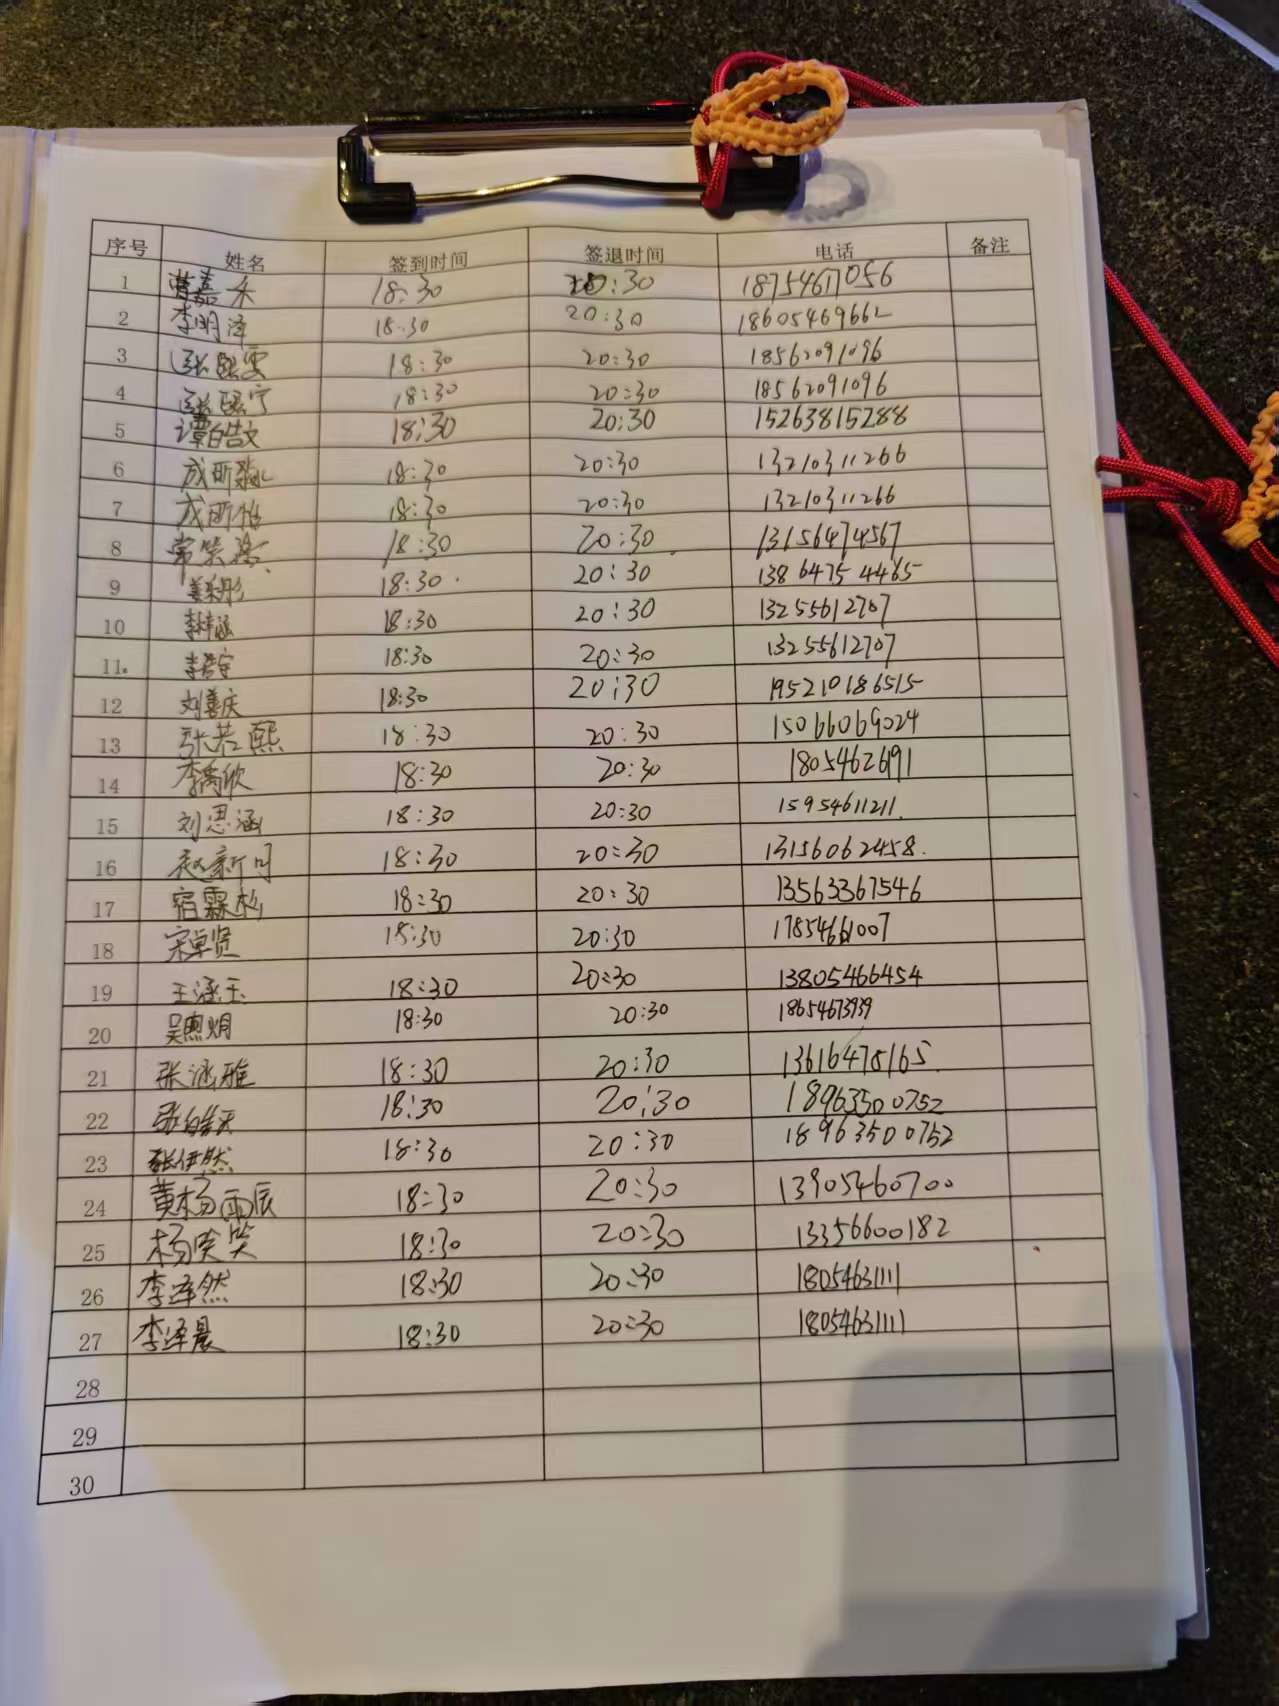 序号 姓名 签到时间 签退时间 电话 备注
1 嘉禾 18:30 :30 18754617056
2 李明泽 18:30 20:30 18605469662
3 张熙雯 18:30 20:30 18562091096
4 张熙宁 18:30 20:30 18562091096
5 谭皓文 18:30 20:30 15263815288
6 成昕 18:30 20:30 13210311266
7 成昕怡 18:30 20:30 13210311266
8 常笑 18:30 20:30 13156474567
9 姜彤 18:30 20:30 13864754465
10 李梓涵 18:30 20:30 13255612707
11 李宇 18:30 20:30 13255612707
12 刘善庆 18:30 20:30 195210186515
13 张若熙 18:30 20:30 15066069024
14 李禹欣 18:30 20:30 18054626191
15 刘思涵 18:30 20:30 15954611211.
16 赵新可 18:30 20:30 13156062458.
17 宿霖彬 18:30 20:30 13563367546
18 宋卓贤 18:30 20:30 17854661007
19 王涵玉 18:30 20:30 13805466454
20 吴煦炯 18:30 20:30 18654673939
21 张涵雅 18:30 20:30 13616478165
22 张皓天 18:30 20:30 18963500752
23 张伊然 18:30 20:30 18963500752
24 黄杨雨辰 18:30 20:30 13905460700
25 杨笑笑 18:30 20:30 13356600182
26 李泽然 18:30 20:30 18054631111
27 李泽晨 18:30 20:30 18054631111
28
29
30